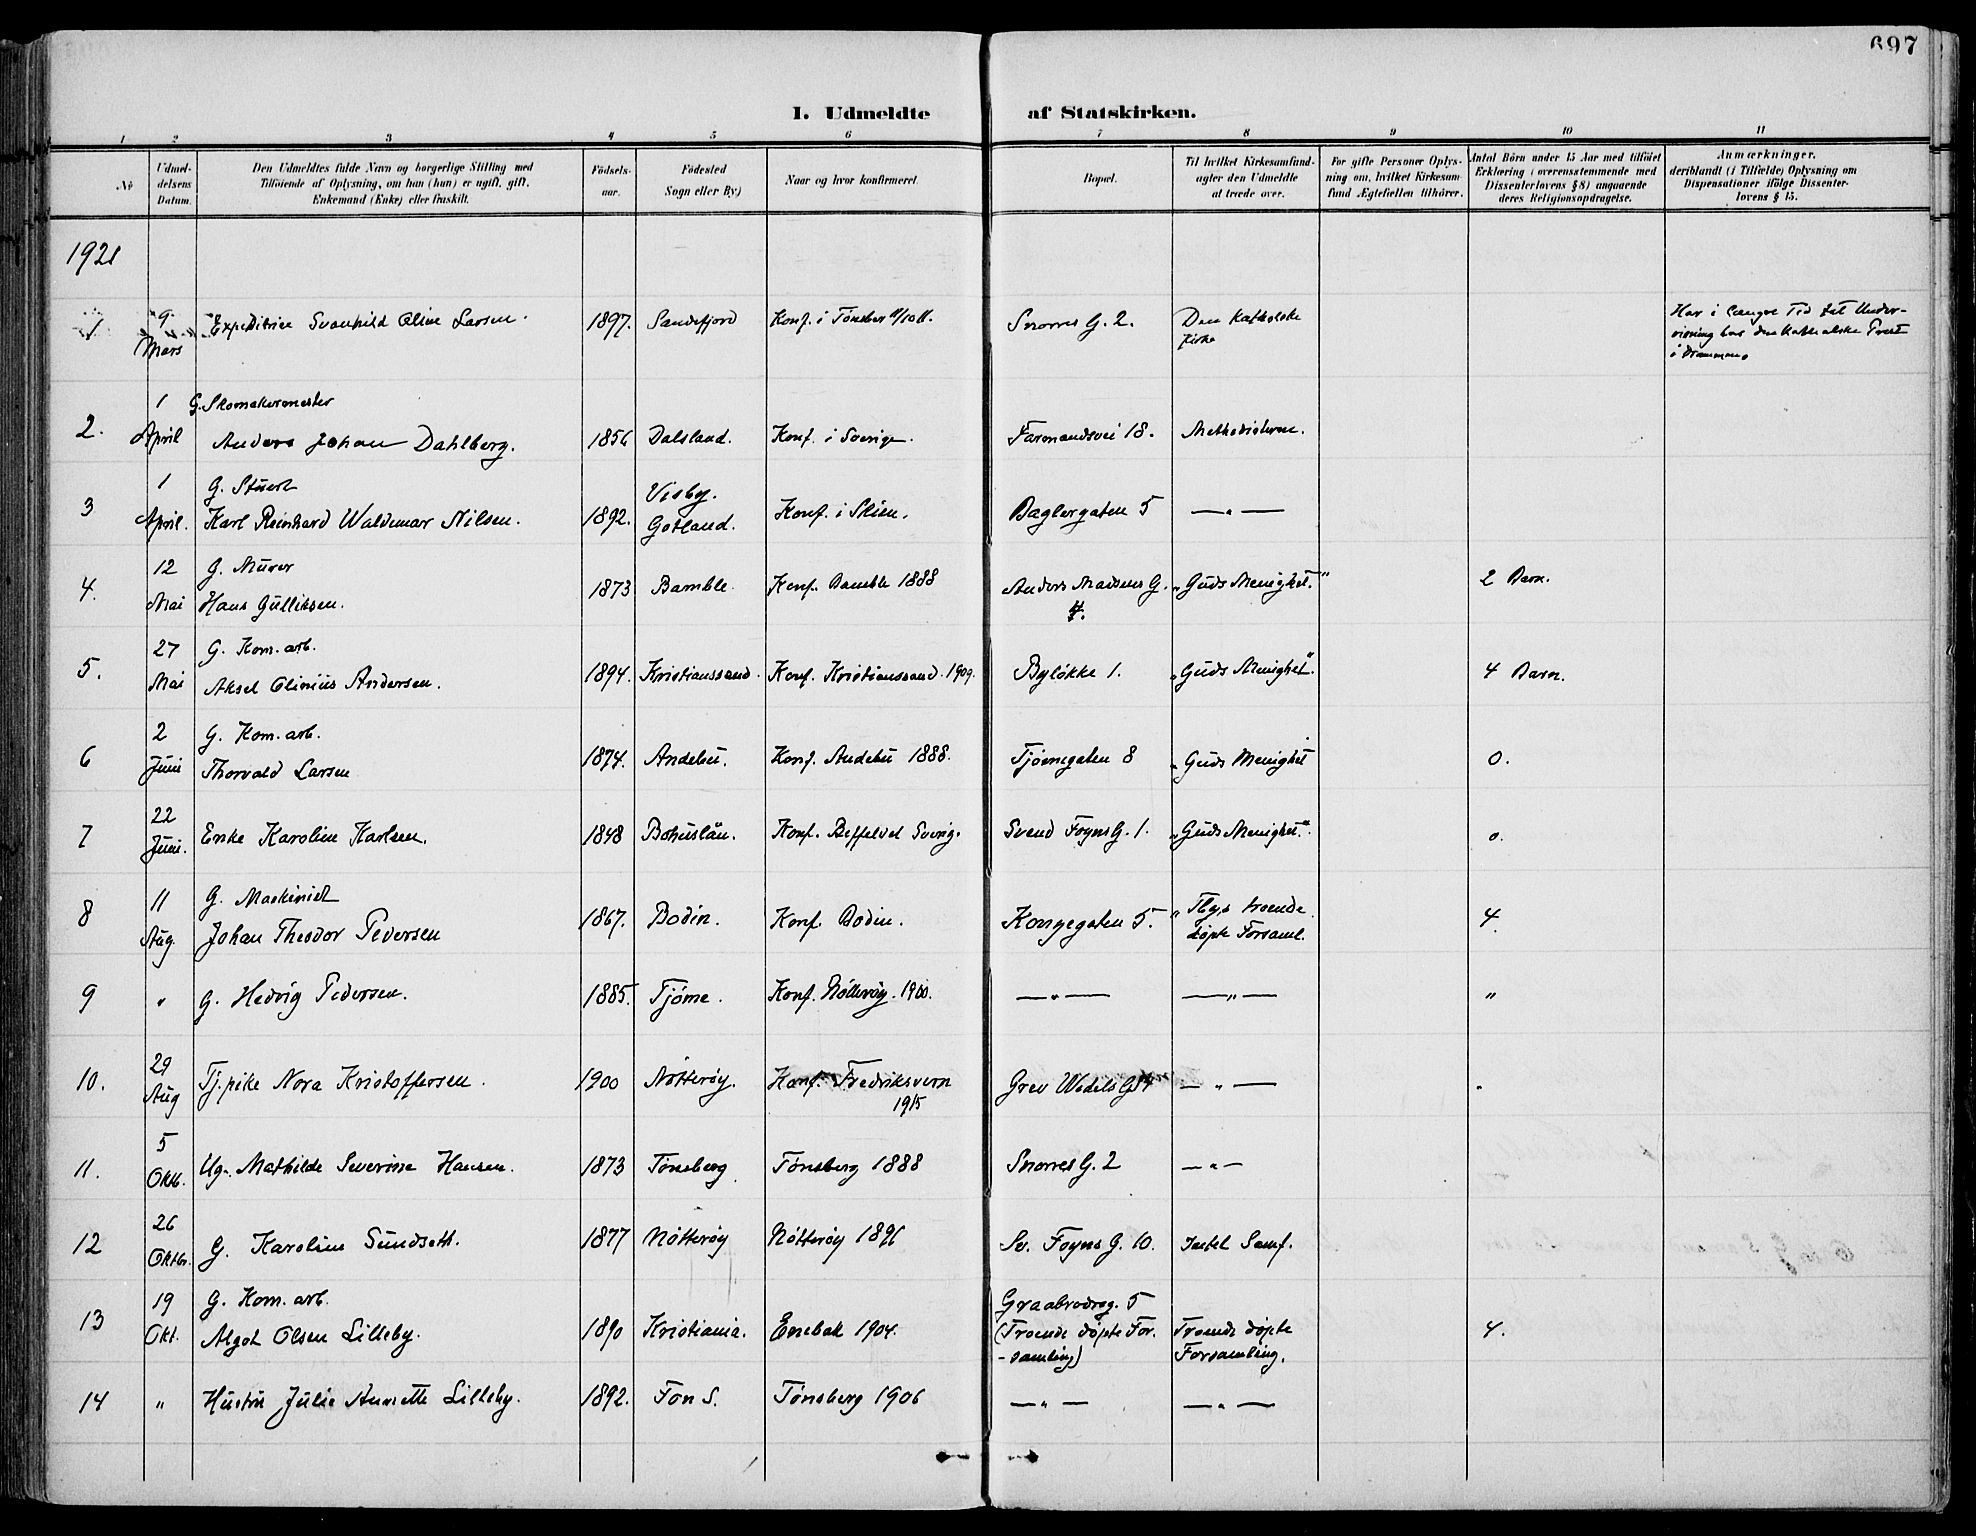 697
I. Udmeldte af Statskirken.
1 2 3 4 5 6 7 8 9 10 11
Nr.
Udmel-
delsens
Datum.
Den Udmeldtes fulde Navn og borgerlige Stilling med
Tilföiende af Oplysning, om han (hun) er ugift, gift,
Enkemand (Enke) eller fraskilt.
Födsels-
aar.
Födested
Sogn eller By)
Naar og hvor konfirmeret.
Bopæl.
Til hvilket Kirkesamfund-
agter den Udmeldte
at træde over.
For gifte Personer Oplys-
ning om, hvilket Kirkesam-
fund Ægtefællen tilhörer.
Antal Börn under 15 Aar med tilföiet
Erklæring i overensstemmende med
Dissenterlovens § 8) angaaende
deres Religionsopdragelse.
Anmærkninger.
deriblandt (i Tilfælde) Oplysning om
Dispensationer ifölge Dissenter-
lovens § 15.
1921
1 9 Mars Expeditrice Svanhild Oline Larsen. 1897. Sandefjord Konf. i Tönsber Snorres G. 2. Den katholske
kirke
Har i længre Tid fåt Under-
visning hos den katholske Prest
i Drammen.
2. 1 April G. Skomakermester
Anders Johan Dahlberg. 1856 Dalsland. Konf. i Sverige. Farmandsvei 18. Methodisterne.
3 1 April. G. Stuert
Karl Reinhard Waldemar Nilsen. 1892. Visby.
Gotland. Konf. i Skien. Baglergaten 5 — " —
4. 12 Mai G. Murer
Hans Gulliksen. 1873 Bamble. Konf. Bamble 1888 Anders Madsens G.
4. "Guds Menighet." 2 Barn.
5. 27 Mai G. Kom. arb.
Aksel Olinius Andersen. 1894. Kristianssand. Konf. Kristianssand. 1909. Byløkke 1. "Guds Menighet". 4 Barn.
6 2 Juni G. Kom. arb.
Thorvald Larsen 1874. Andebu. Konf. Andebu 1888. Tjömegaten 8 "Guds Menighet 0.
7 22 Juni. Enke Karoline Karlsen. 1848 Bohuslän. Konf. Sverig. Svend Foyns G. 1. "Guds Menighet". 0.
8 11 Aug. G. Maskinist
Johan Theodor Pedersen 1867. Bodin. Konf. Bodin. Kongegaten 5. troende
döpte Forsaml. 4.
9 " G. Hedvig Pedersen. 1885. Tjöme. Konf. Nötteröy. 1900. — " — — " — "
10. 29 Aug Tj.pike Nora Kristoffersen. 1900 Nötteröy. Konf. Fredriksvern
1915 Grev Wedels G. — " —
11. 5 Oktb. Ug. Mathilde Severine Hansen. 1873 Tönsberg Tönsberg 1888 Snorres G. 2 — " —
12 26 Oktbr. G. Karoline Sundseth. 1877 Nötteröy Nötteröy 1891 Sv. Foyns G. 10. Intet Samf.
13 19 Okt. G. Kom. arb.
Algot Olsen Lilleby. 1890 Kristiania. Enebak 1904. Graabrødreg. 5
(Troende döpte For-
-samling) Troende döpte
Forsamling. 4.
14 " Hustru Julie Annette Lilleby. 1892. Fon S. Tönsberg 1906 — " — — " —